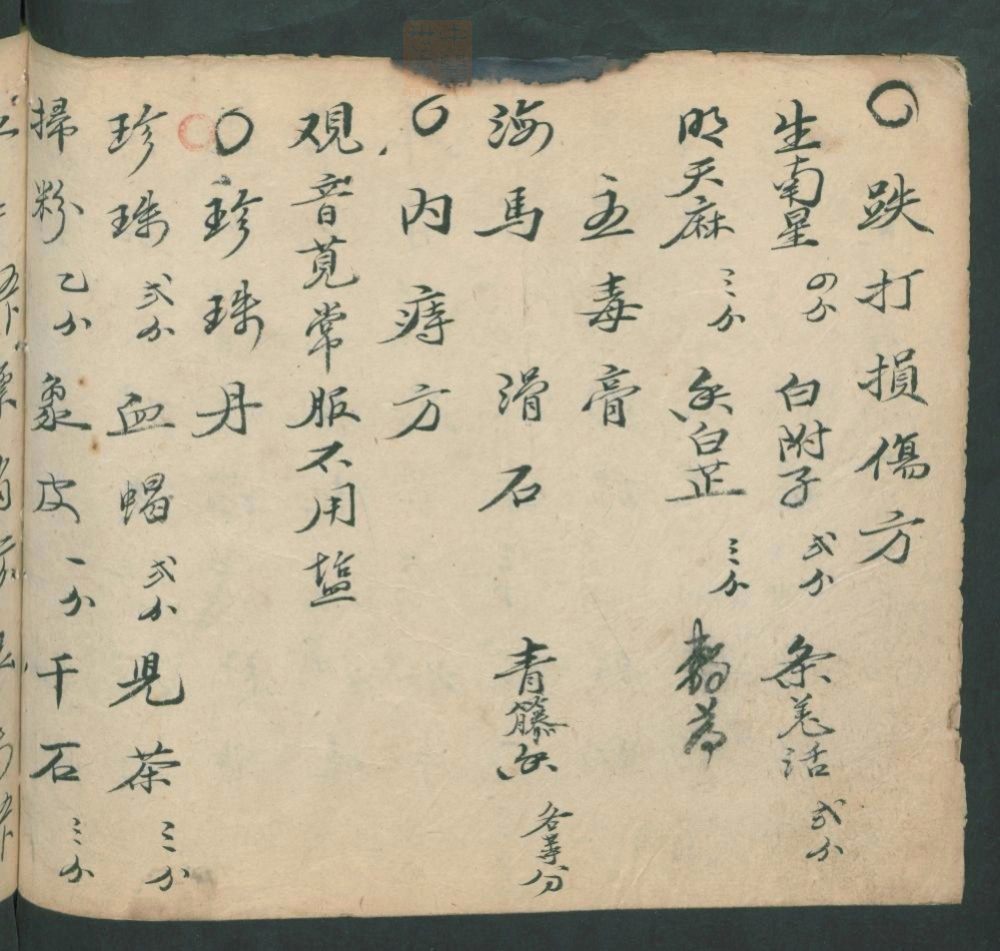 跌打損傷方
生南星 四分 白附子 弍分 条羌活 弍分
明天麻 三分 白芷 三分
五毒膏
海馬 滑石 青籐 各等分
内痔方
观音莧常服不用塩
珍珠丹
珍珠 弍分 血蝎 弍分 児茶 三分
掃粉 乙分 象皮 一分 干石 三分